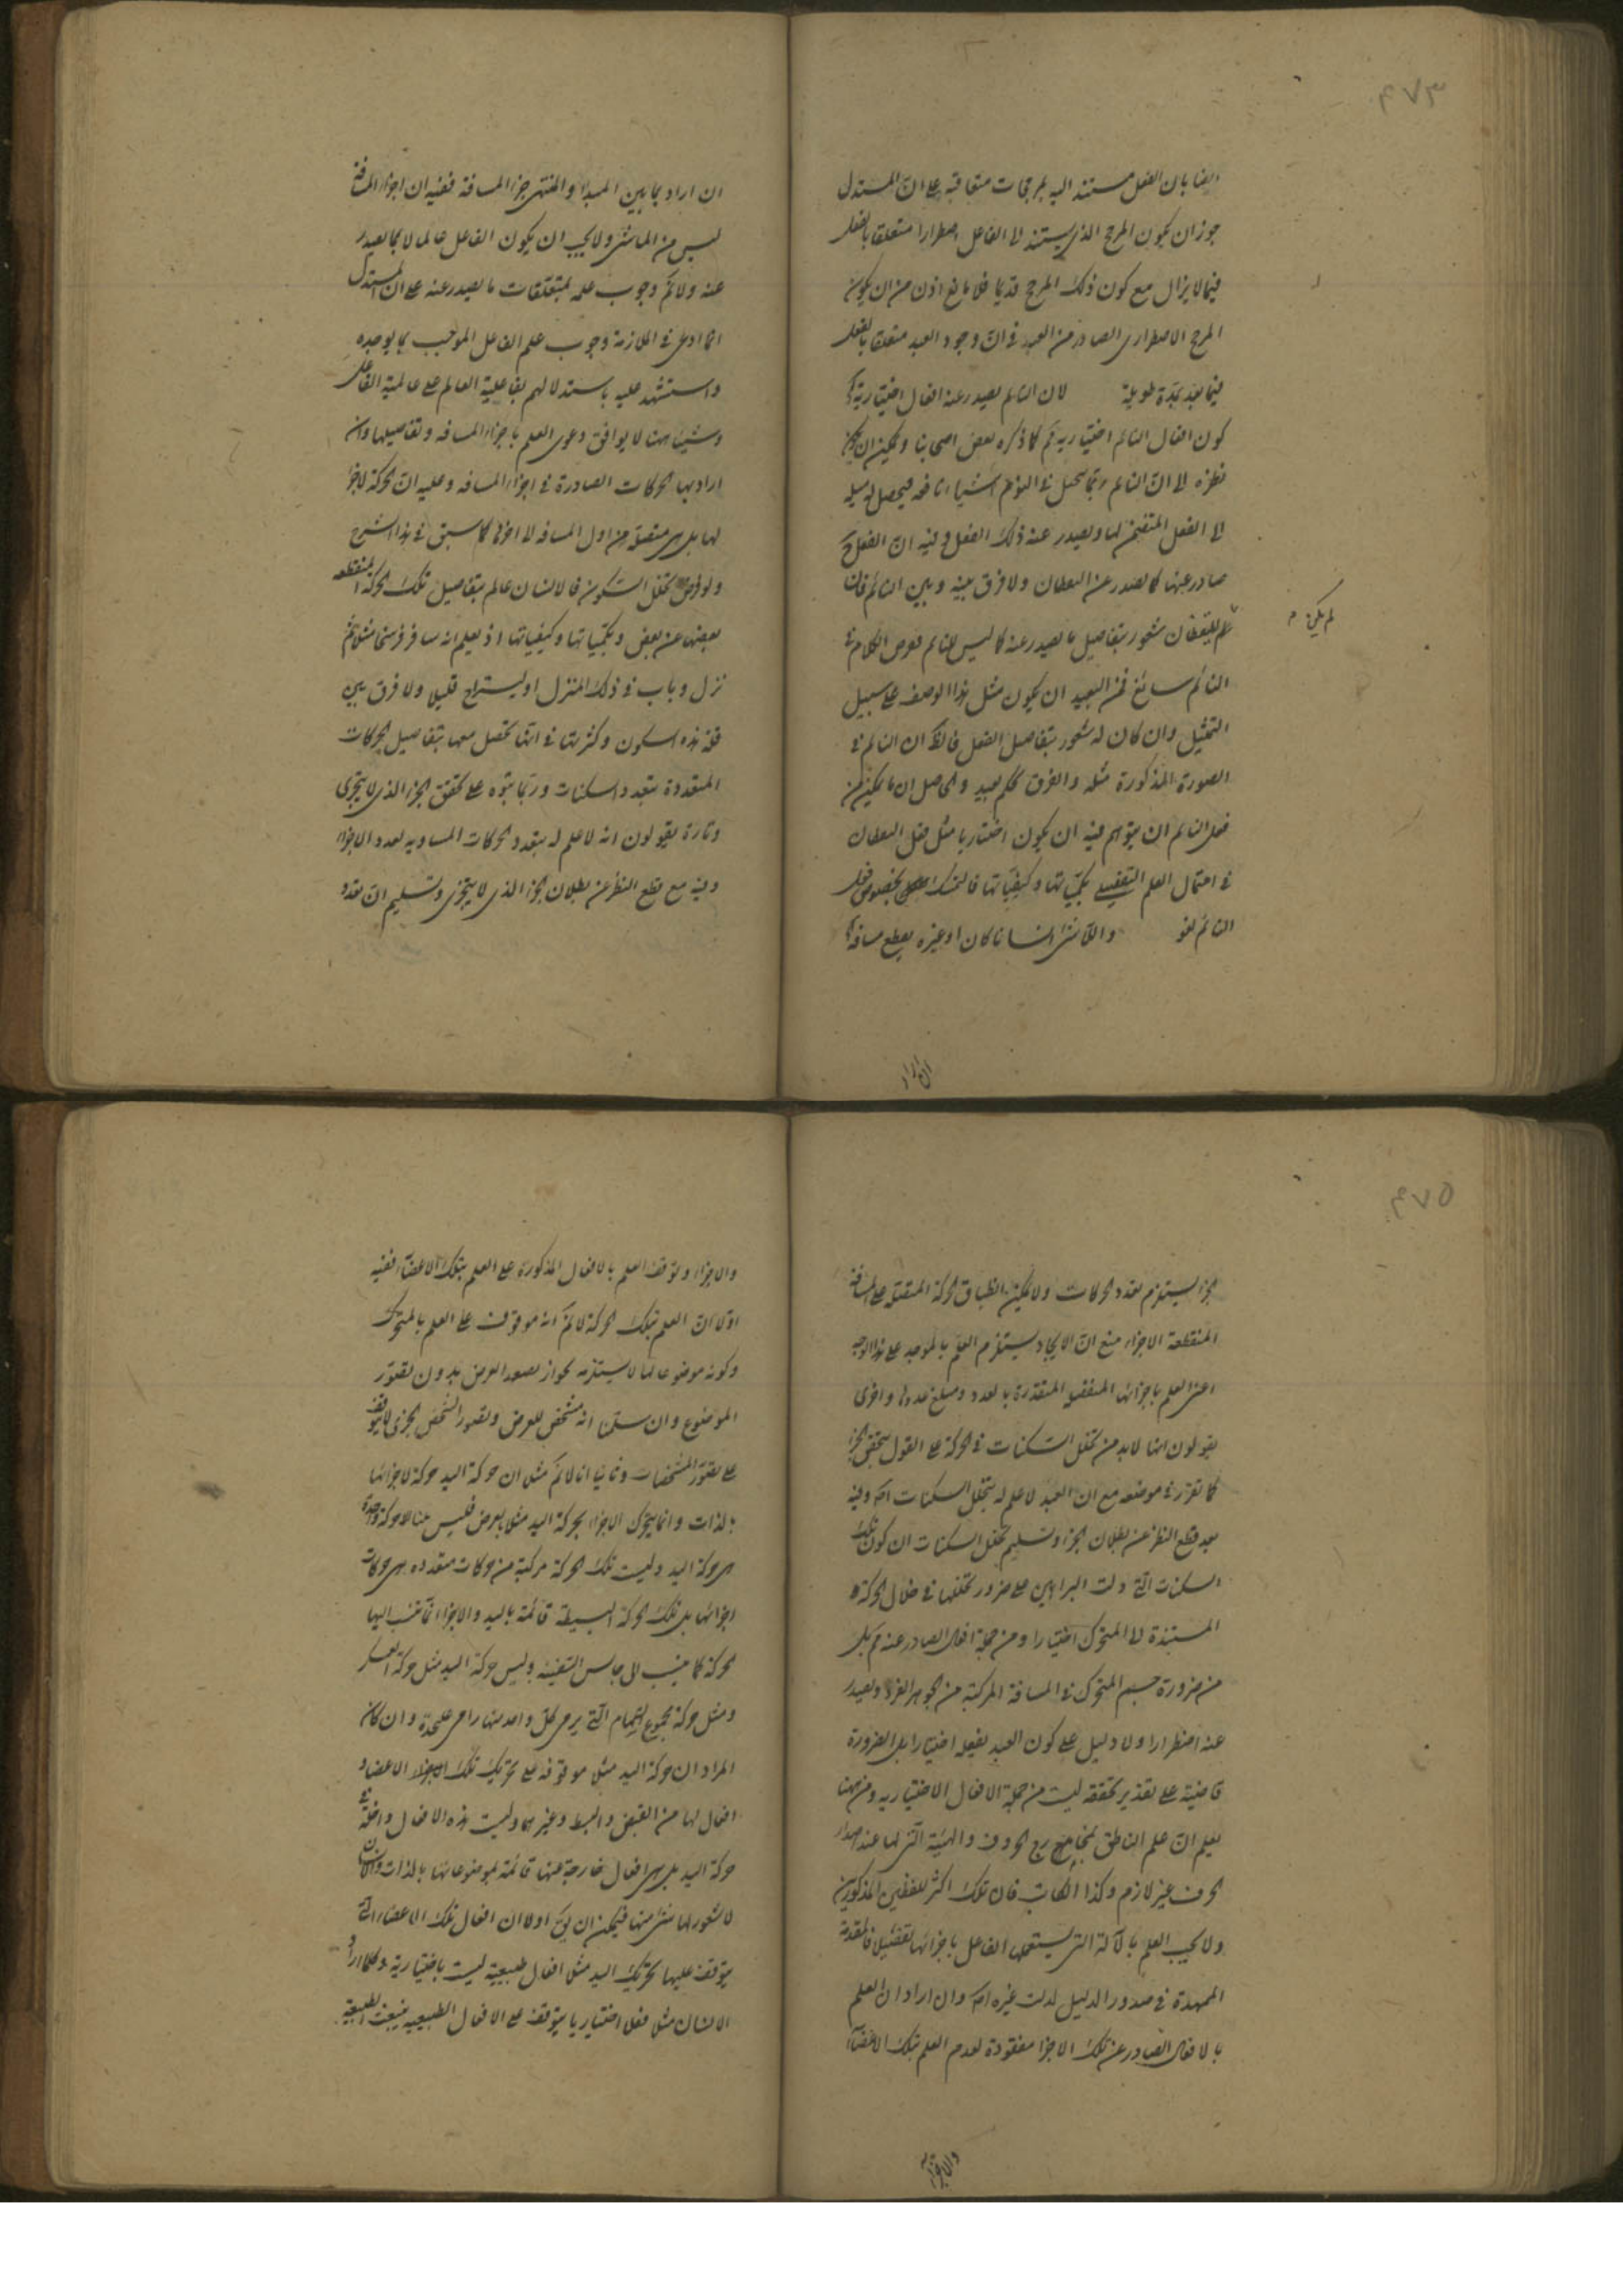 ٤٧٣
ايضا بان الفعل مستند اليه بمرجحات متعاقبة على ان المستدل
جوز ان يكون المرجح الذى يستند الى الفاعل اضطرارا متعلقا بالفعل
فيما لا يزال مع كون ذلك المرجح قديما فلا مانع اذن من ان يكون
المرجح الاضطرارى الصادر من العبد فى ان وجود العبد متعلقا بالفعل
فيما بعد بمدة طويلة لان النائم يصدر عنه افعال اختيارية
كون افعال النائم اختيارية كما ذكره بعض اصحابنا ويمكن ان يكون
نظره الى ان النائم ربما يتخيل فى النوم اشياء نافعه فيحصل له ميله
الى الفعل المتضمن لها ويصدر عنه ذلك الفعل وفيه ان الفعل ح
صادر عنها كما يصدر عن اليقظان ولا فرق بينه وبين النائم فان
لم يكن
لليقظان شعور بتفاصيل ما يصدر عنه كما ليس للنائم فعرض الكلام فى
النائم سائغ فمن البعيد ان يكون مثل هذا الوصف على سبيل
التمثيل وان كان له شعور بتفاصيل الفعل فالظ ان النائم فى
الصورة المذكورة مثله والفرق تحكم بعيد والحاصل ان ما يمكن من
فعل النائم ان يتوهم فيه ان يكون اختياريا مثل فعل اليقظان
فى احتمال العلم التفصيلى بكمياتها وكيفياتها فالتمسك بخصوص فعل
النائم لغو والماشى انسانا كان او غيره يقطع مسافة
ان اراد
ان اراد بما بين المبدا والمنتهى جزء المسافة ففيه ان اجزاء المسافة
ليس من الماشى ولا يجب ان يكون الفاعل عالما لا بما يصدر
عنه ولا نم وجوب علمه بمتعلقات ما يصدر عنه على ان المستدل
انما ادعى فى الملازمة وجوب علم الفاعل الموجب بما يوجده
واستشهد عليه باستدلالهم بفاعلية العالم على عالمية الفاعل
وشيئا منها لا يوافق دعوى العلم باجزاء المسافه وتفاصيلها وان
اراد بها الحركات الصادرة فى اجزاء المسافه وعليه ان الحركة لا جزء
لها بل هى متصلة من اول المسافه الى اخرها كما سبق فى هذا الشرح
ولو فرض تخلل السكون فالانسان عالم بتفاصيل تلك الحركة المنقطعه
بعضها عن بعض وبكمياتها وكيفياتها اذ يعلم انه سافر فرسخا مثلا ثم
نزل وبات فى ذلك المنزل او يستراح قليلا ولا فرق بين
قلة هذه السكون وكثرتها فى انها تحصل معها بتفاصيل الحركات
المتعددة بتعدد السكنات وربما بنوه على تحقق الجزء الذى لا يتجزى
وتارة يقولون انه لا علم له بتعدد الحركات المساويه لعدد الاجزاء
وفيه مع قطع النظر عن بطلان الجزء الذى لا يتجزى وتسليم ان تعدد
٤٧٥
الجزء يستلزم تعدد الحركات ولا يمكن انطباق الحركة المتصلة على المسافة
المنقطعة الاجزاء منع ان الايجاد يستلزم العلم بالموجد على هذا الوجه
اعنى العلم باجزائها المنفصلة المتقدرة بالعدد ومبلغ عددها واخرى
يقولون انها لا بد من تخلل السكنات فى الحركة على القول بتحقق الجزء
كما تقرر فى موضعه مع ان العبد لا علم له بتخلل السكنات اه وفيه
بعد قطع النظر عن بطلان الجزء وتسليم تخلل السكنات ان كون تلك
السكنات التى دلت البراهين على ضرورة تخللها فى خلال الحركة
المستندة الى المتحرك اختيارا ومن جملة افعاله الصادر عنه مم بل
من ضرورة جسم المتحرك فى المسافة المركبة من الجوهر الفرد ويصدر
عنه اضطرارا ولا دليل على كون العبد يفعله اختيارا بل الضرورة
قاضية على تقدير تحققه ليست من جملة الافعال الاختيارية ومن هنا
يعلم ان علم الناطق بمخارج الحروف والهيئة التى لها عند اصدار
الحرف غير لازم وكذا الكاتب فان تلك اكثر للفضين المذكورين
ولا يجب العلم بالآلة التى يستعملها الفاعل باجزائها تفصيلا فالمقدمة
الممهدة فى صدور الدليل لدلت غيره اه وان اراد ان العلم
بالافعال الصادر عن تلك الاجزاء مفقودة لعدم العلم بتلك الاعضاء
والاجزاء
والاجزاء وتوقف العلم بالافعال المذكورة على العلم بتلك الاعضاء ففيه
اولا ان العلم بتلك الحركة لا نم انه موقوف على العلم بالمتحرك
وكونه موضوعا لها لا يستلزمه لجواز تصور العرض بدون تصور
الموضوع وان سلمنا انه مشخص للعرض وتصور الشخص الجزئى لا يتوقف
على تصور المشخصات وثانيا انا لا نم مثل ان حركة اليد حركة لاجزائها
بالذات وانما يتحرك الاجزاء بحركة اليد مثلا بالعرض فليس هنا الا حركة واحدة
هى حركة اليد وليست تلك الحركة مركبة من حركات متعدده هى حركات
اجزائها بل تلك الحركة البسيطة قائمة باليد والاجزاء انما تنسب اليها
الحركة كما ينسب الى جالس السفينة وليس حركة اليد مثل حركة العسكر
ومثل حركة مجموع السهام التى يرمى كل واحد منها رام على حدة وان كان
المراد ان حركة اليد مثلا موقوفة على تحريك تلك الاجزاء الاعضاء و
افعال لها من القبض والبسط وغيرهما وليست هذه الافعال داخلة فى
حركة اليد بل هى افعال خارجة عنها قائمة بموضوعاتها بالذات والانسان
لا شعور له بشئ منها فيمكن ان يق اولا ان افعال تلك الاعضاء التى
يتوقف عليها تحريك اليد مثلا افعال طبيعية ليست باختيارية وكلما اراد
الانسان مثلا فعلا اختياريا يتوقف على الافعال الطبيعيه ينبعث الطبيعة